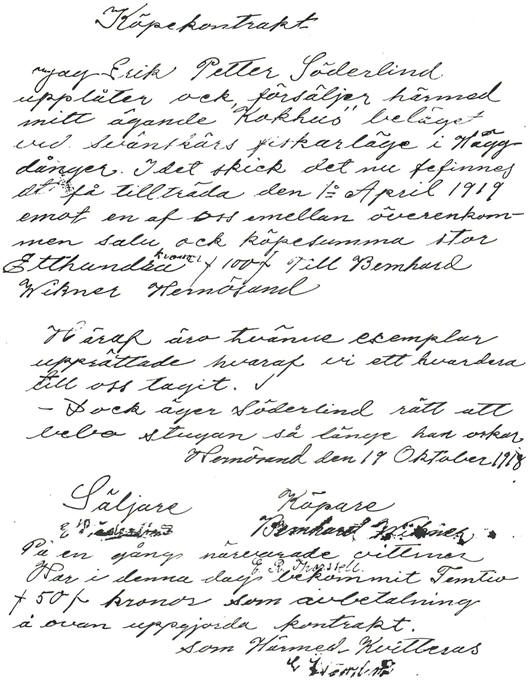 Köpekontrakt
Jag Erik Petter Söderlind
upplåter ock försäljer härmed
mitt ägande "Kokhus" beläget
vid Svänskärs fiskarläge i Hägg-
dånger. I det skick det nu befinnes
att få tillträda den 1º April 1919
emot en af oss emellan överenkom-
men salu ock köpesumma stor
Etthundra kronor /100/ Till Bernhard
Wikner Hernösand
Häraf äro tvänne exemplar
upprättade hvaraf vi ett hvardera
till oss tagit.
- Dock äger Söderlind rätt att
bebo stugan så länge han orkar
Hernösand den 19 Oktober 1918
Säljare Köpare
E P Söderlind Bernhard Wikner
På en gång närvarade vittnen
E. R.
Har i denna dag bekommit Femtio
/50/ kronor som avbetalning
å ovan uppgjorda kontrakt.
som Härmed Kvitteras